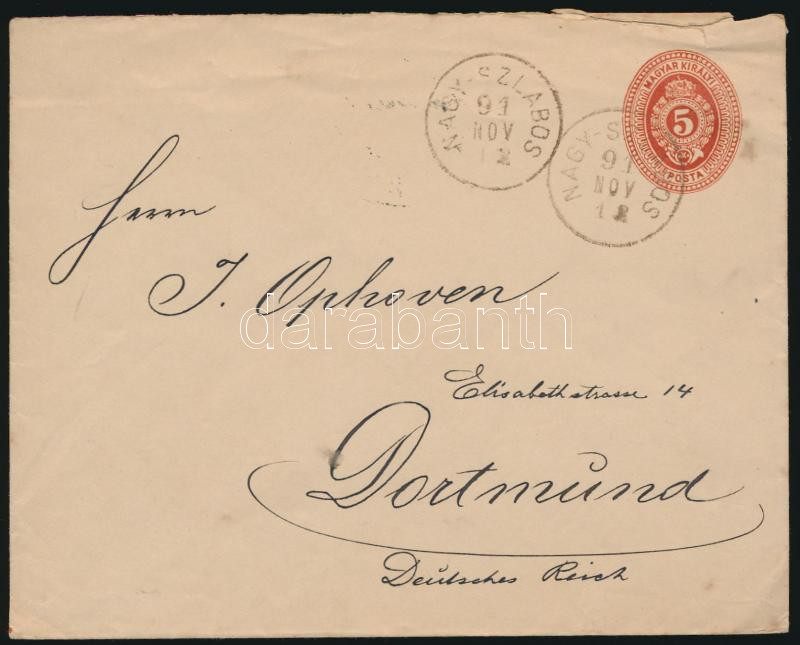 NAGY-SZLABOS
91
NOV
12
MAGYAR KIRÁLYI
5
POSTA
91
NOV
12
Herrn
J. Ophoven
darabanth
Elisabethstrasse 14
Dortmund
Deutsches Reich